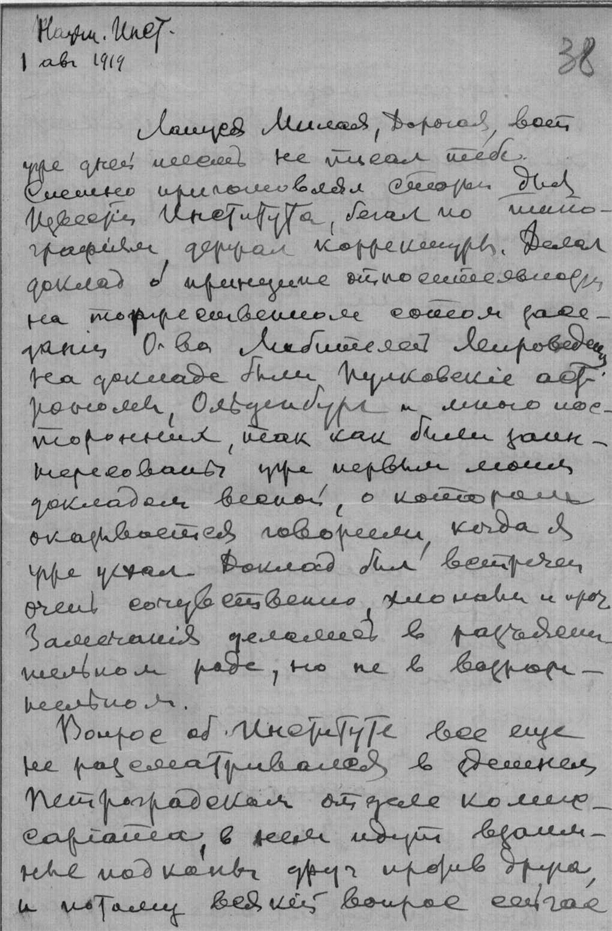 Научн. Инст.
1 авг 1919
38
Лапуся Милая, Дорогая, вот
уже дней шесть не писал тебе.
Спешно приготовлял сборн для
Известiй Института, бегал по типо-
графiям, держал корректуры. Делал
доклад о принципе относительности
на торжественном сотом засе-
данiи О-ва Любителей Мироведенiя
На докладе были Пулковскiе аст-
рономы, Ольденбург и много пос-
торонних, так как были заин-
тересованы уже первым моим
докладом весной, о котором
оказывается говорили, когда я
уже уехал. Доклад был встречен
очень сочувственно, хлопали и проч
Замечанiя делались в разъясни
тельном роде, но не в возрази-
тельном.
Вопрос об Институте все еще
не рассматривался в здешнем
Петроградском отделе комис-
сарiата, в нем идут взаим-
ные подкопы друг против друга,
и потому всякiй вопрос сейчас